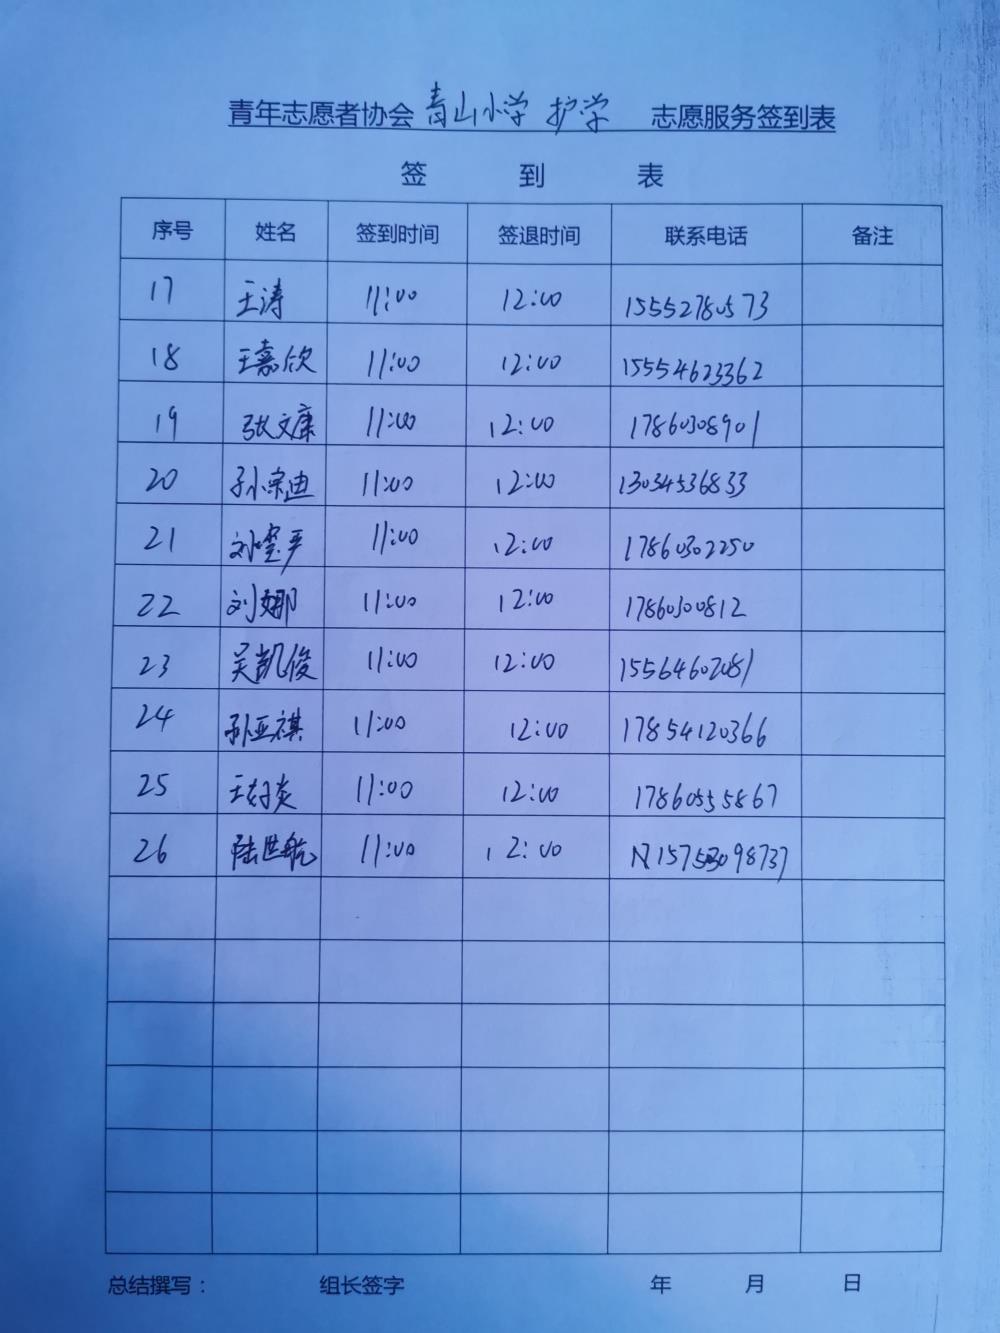 青年志愿者协会 青山小学 护学 志愿服务签到表
签 到 表
序号 姓名 签到时间 签退时间 联系电话 备注
17 王涛 11:00 12:00 15552780573
18 王嘉欣 11:00 12:00 15554623362
19 张文康 11:00 12:00 17860308901
20 孙宗迪 11:00 12:00 13034536833
21 11:00 12:00 17860302250
22 刘娜 11:00 12:00 17860300812
23 吴凯俊 11:00 12:00 15564602081
24 孙亚祺 11:00 12:00 17854120366
25 11:00 12:00 17860555867
26 陆世航 11:00 12:00
总结撰写： 组长签字 年 月 日